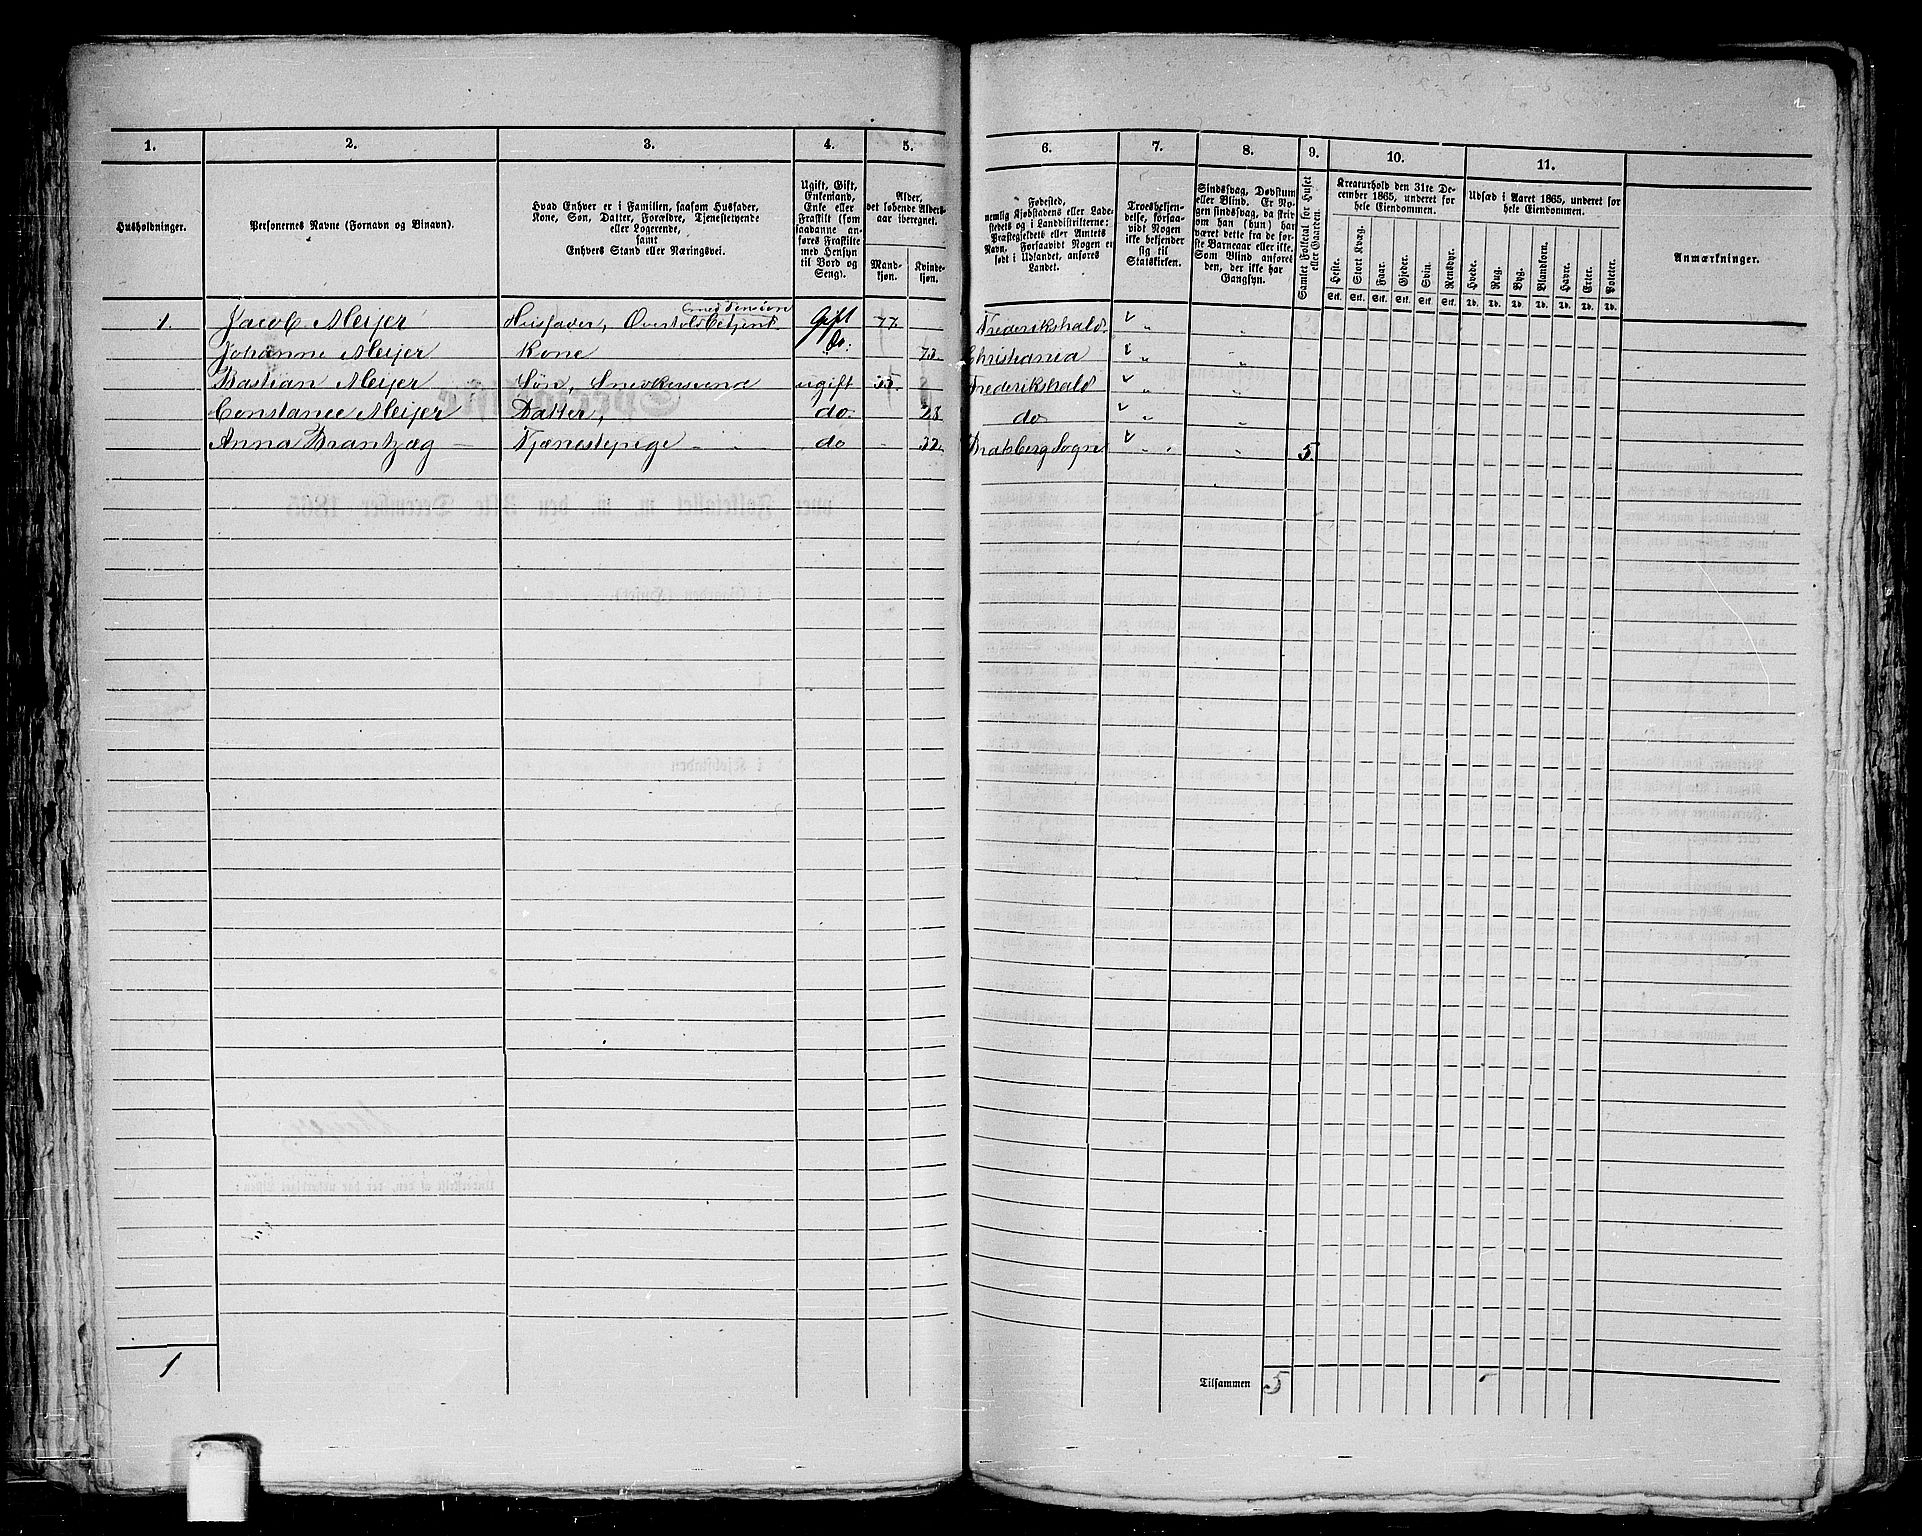 1. 2. 3. 4. 5. 6. 7. 8. 9. 10. 11.
Husholdninger.
Personernes Navne (Fornavn og Binavn).
Hvad Enhver er i Familien, saasom Husfader,
Kone, Søn, Datter, Forældre, Tjenestetyende
eller Logerende,
samt
Enhvers Stand eller Næringsvei.
Ugift, Gift,
Enkemand,
Enke eller
Fraskilt (som
saadanne an-
føres Fraskilte
med Hensyn
til Bord og
Seng).
Alder,
det løbende Alders-
aar iberegnet.
Mand-
kjøn.
Kvinde-
kjøn.
Fødested,
nemlig Kjøbstadens eller Lade-
stedets og i Landdistrikterne:
Præstegjeldets eller Amtets
Navn. Forsaavidt Nogen er
født i Udlandet, anføres
Landet.
Troesbekjen-
delse, forsaa-
vidt Nogen
ikke bekjender
sig til
Statskirken.
Sindssvag, Døvstum
eller Blind. Er No-
gen sindssvag, da skri-
ves om han (hun) har
været dette fra de før-
ste Barneaar eller ikke.
Som Blind anføres
den, der ikke har
Gangsyn.
Samlet Folketal for Huset
eller Gaarden.
Kreaturhold den 31te De-
cember 1865, underet for
hele Eiendommen.
Heste. Stort Kvæg. Faar. Gjeder. Svin. Rensdyr.
Stk. Stk. Stk. Stk. Stk. Stk.
Udsæd i Aaret 1865, underet for
hele Eiendommen.
Hvede. Rug. Byg. Blandkorn. Havre. Erter. Poteter.
Td. Td. Td. Td. Td. Td. Td.
Anmærkninger.
med Pension
1. Jacob Meijer Husfader, Overtoldbetjent Gift 77. Frederikshald
Johanne Meijer Kone do: 73. Christiania
Bastian Meijer Søn, ugift 35. Frederikshald
Constance Meijer Datter, do. 28. do
Anna Brantzæg Tjenestepige do 32. Bratsberg Sogn 5.
1
Tilsammen 5